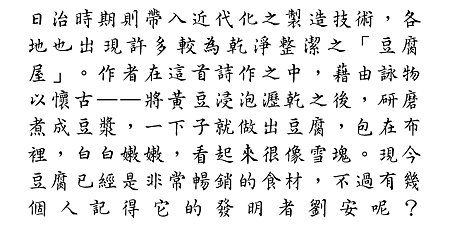 日治時期則帶入近代化之製造技術，各
地也出現許多較為乾淨整潔之「豆腐
屋」。作者在這首詩作之中，藉由詠物
以懷古——將黃豆浸泡瀝乾之後，研磨
煮成豆漿，一下子就做出豆腐，包在布
裡，白白嫩嫩，看起來很像雪塊。現今
豆腐已經是非常暢銷的食材，不過有幾
個人記得它的發明者劉安呢？